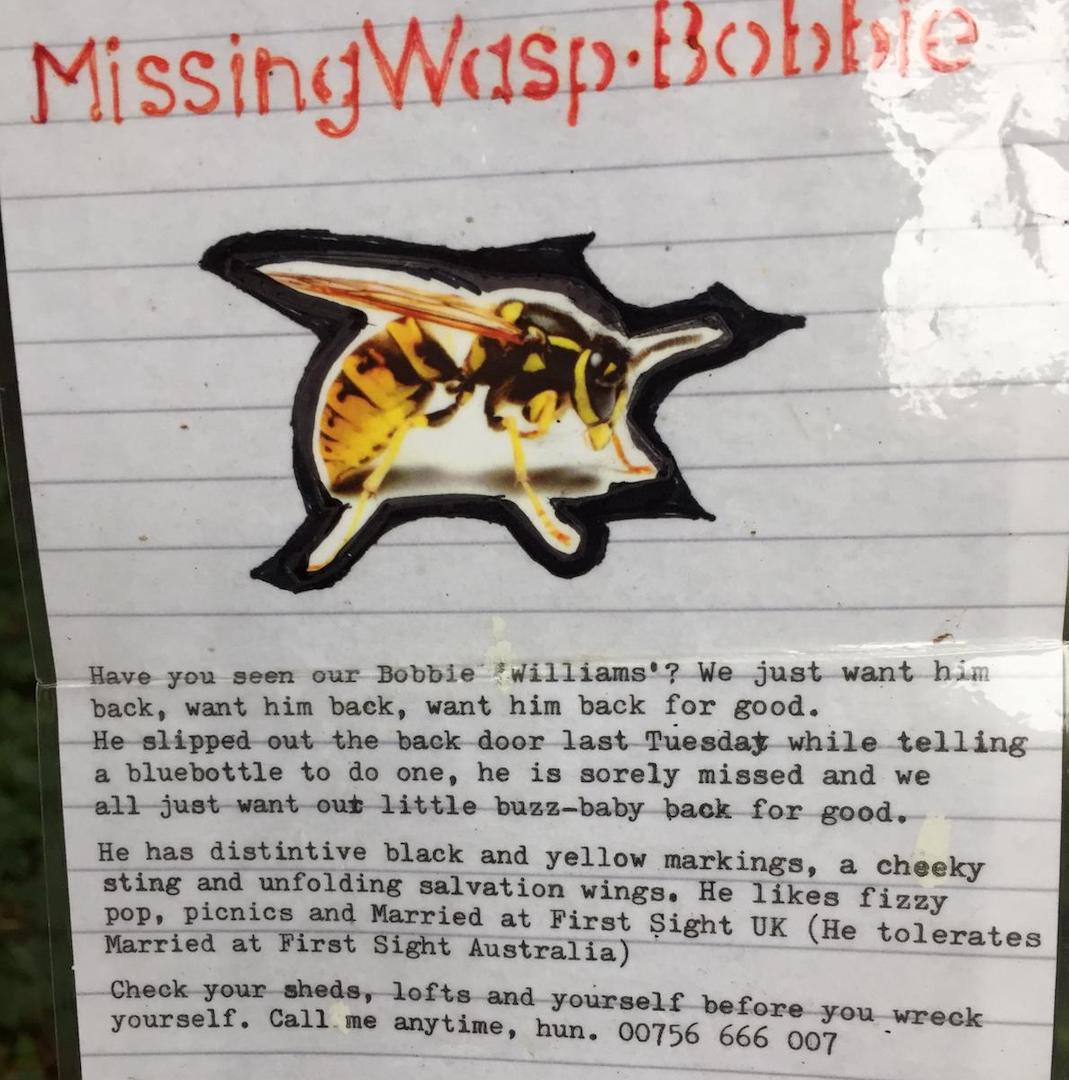 MissingWasp·Bobbie
Have you seen our Bobbie 'Williams'? We just want him
back, want him back, want him back for good.
He slipped out the back door last Tuesday while telling
a bluebottle to do one, he is sorely missed and we
all just want our little buzz-baby back for good.
He has distintive black and yellow markings, a cheeky
sting and unfolding salvation wings. He likes fizzy
pop, picnics and Married at First Sight UK (He tolerates
Married at First Sight Australia)
Check your sheds, lofts and yourself before you wreck
yourself. Call me anytime, hun. 00756 666 007